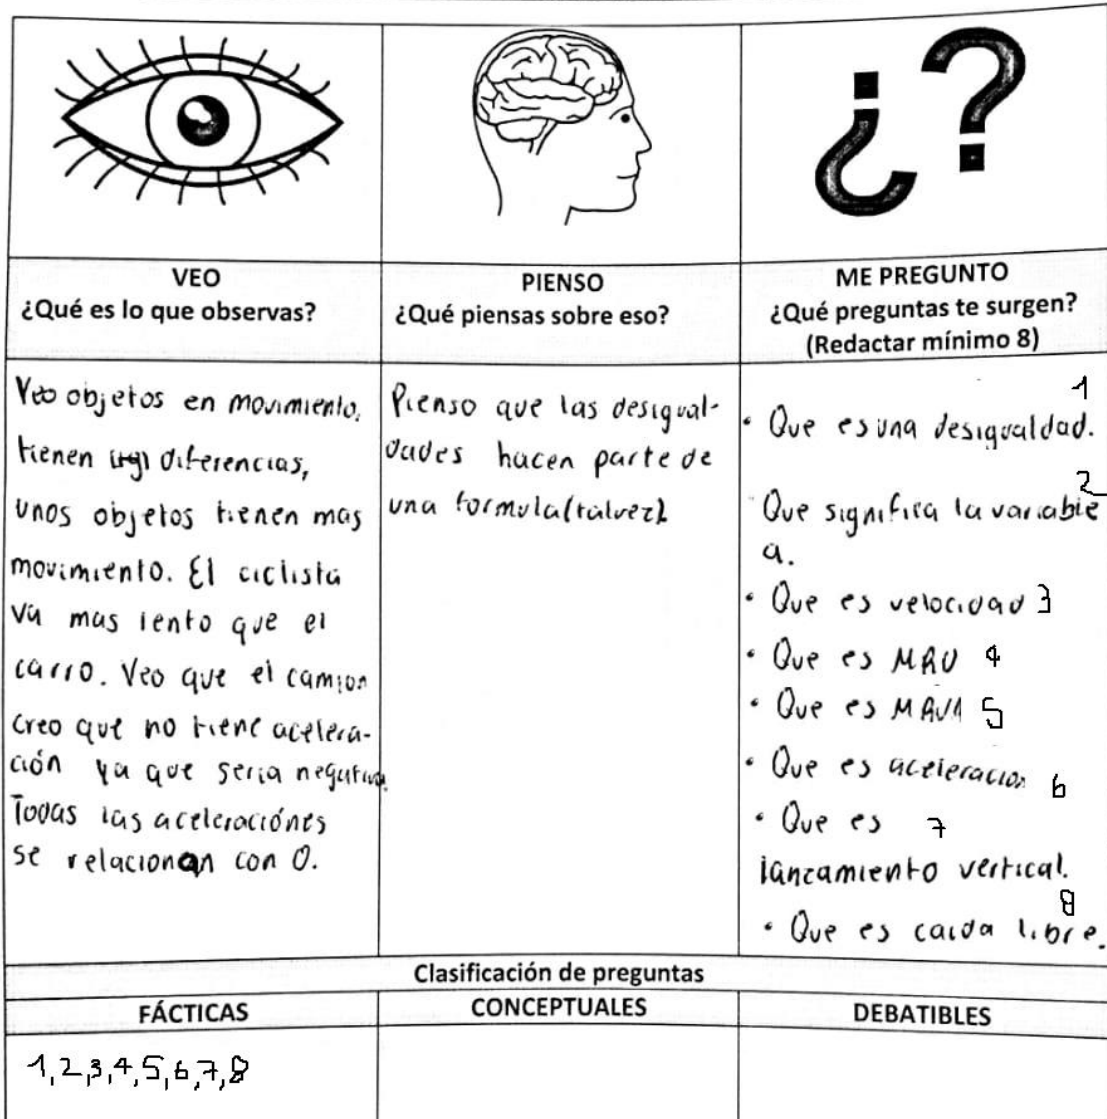 ¿?
VEO
¿Qué es lo que observas?
PIENSO
¿Qué piensas sobre eso?
ME PREGUNTO
¿Qué preguntas te surgen?
(Redactar mínimo 8)
Veo objetos en movimiento,
tienen diferencias,
unos objetos tienen mas
movimiento. El ciclista
va mas lento que el
carro. Veo que el camion
creo que no tiene acelera-
ción ya que seria negativa
Todas las aceleraciónes
se relacionan con 0.
Pienso que las desigual-
dades hacen parte de
una formula(talvez).
1
• Que es una desigualdad.
2
Que significa la variable
a.
• Que es velocidad 3
• Que es MRU 4
• Que es MRUA 5
• Que es aceleracion 6
• Que es 7
lanzamiento vertical.
8
• Que es caida libre.
Clasificación de preguntas
FÁCTICAS
CONCEPTUALES
DEBATIBLES
1,2,3,4,5,6,7,8